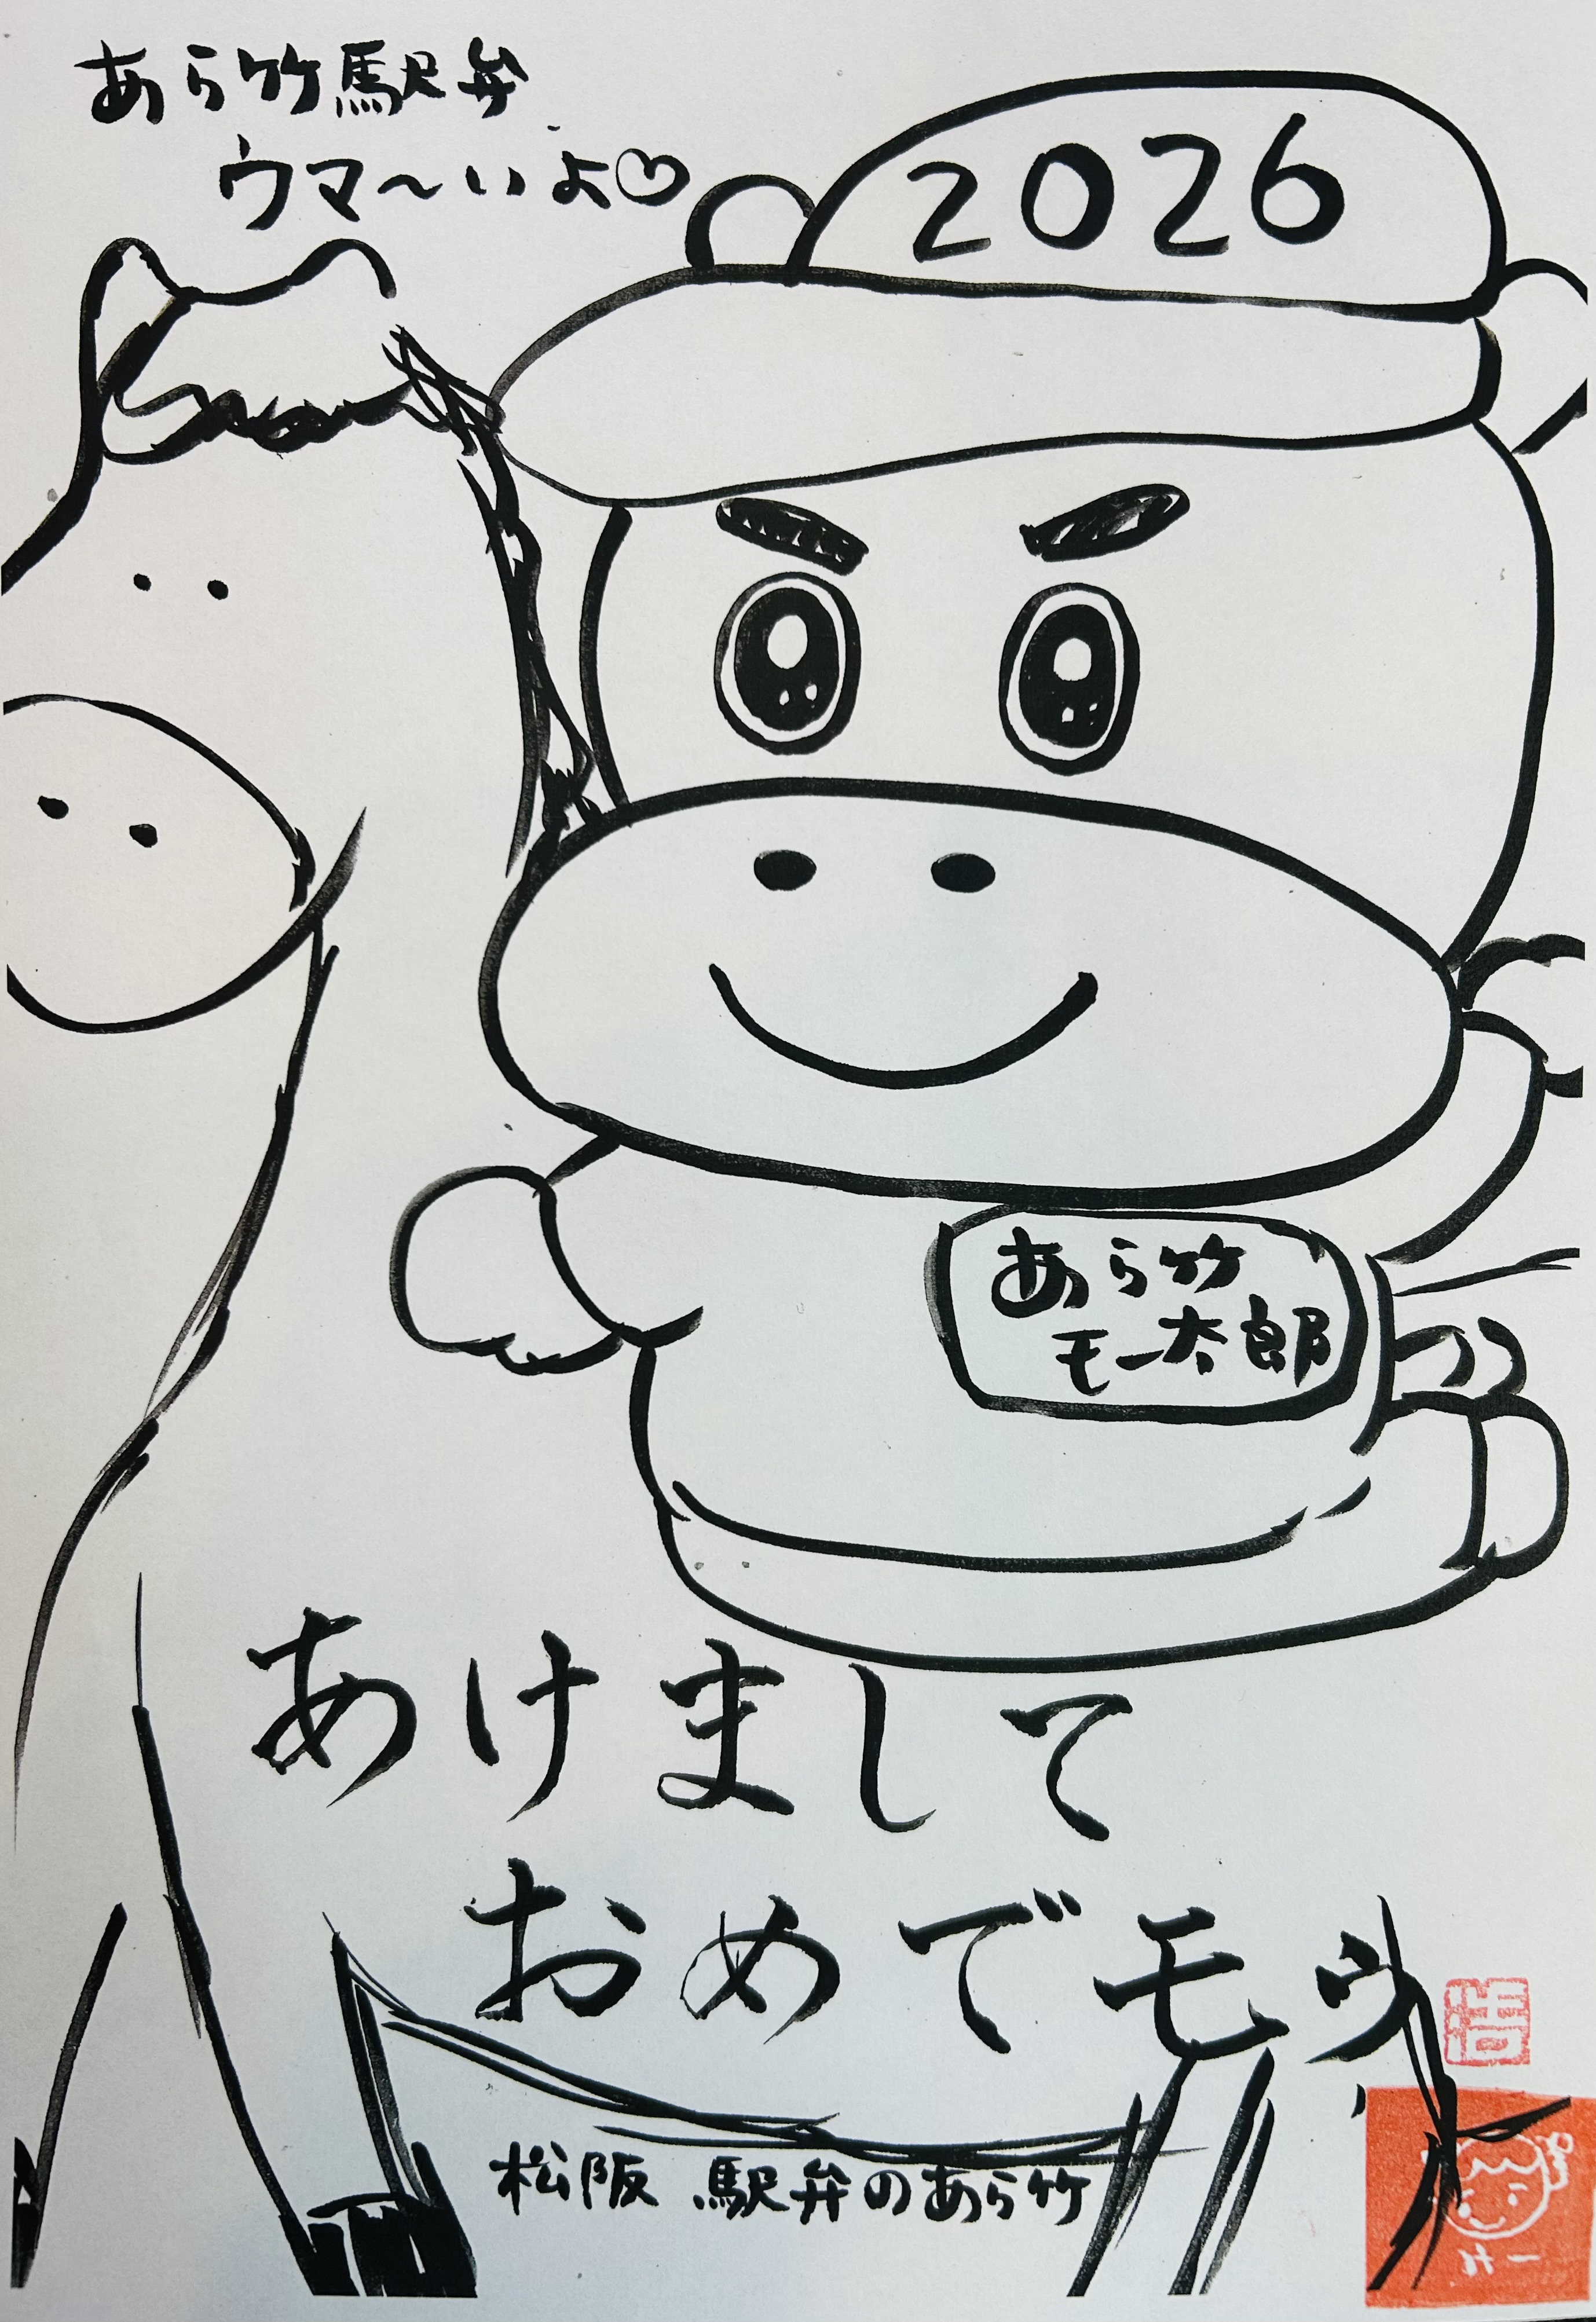 あら竹駅弁
ウマ〜いよ♡
2026
あら竹
モー太郎
あけまして
おめでモウ
松阪 駅弁のあら竹
浩
けー